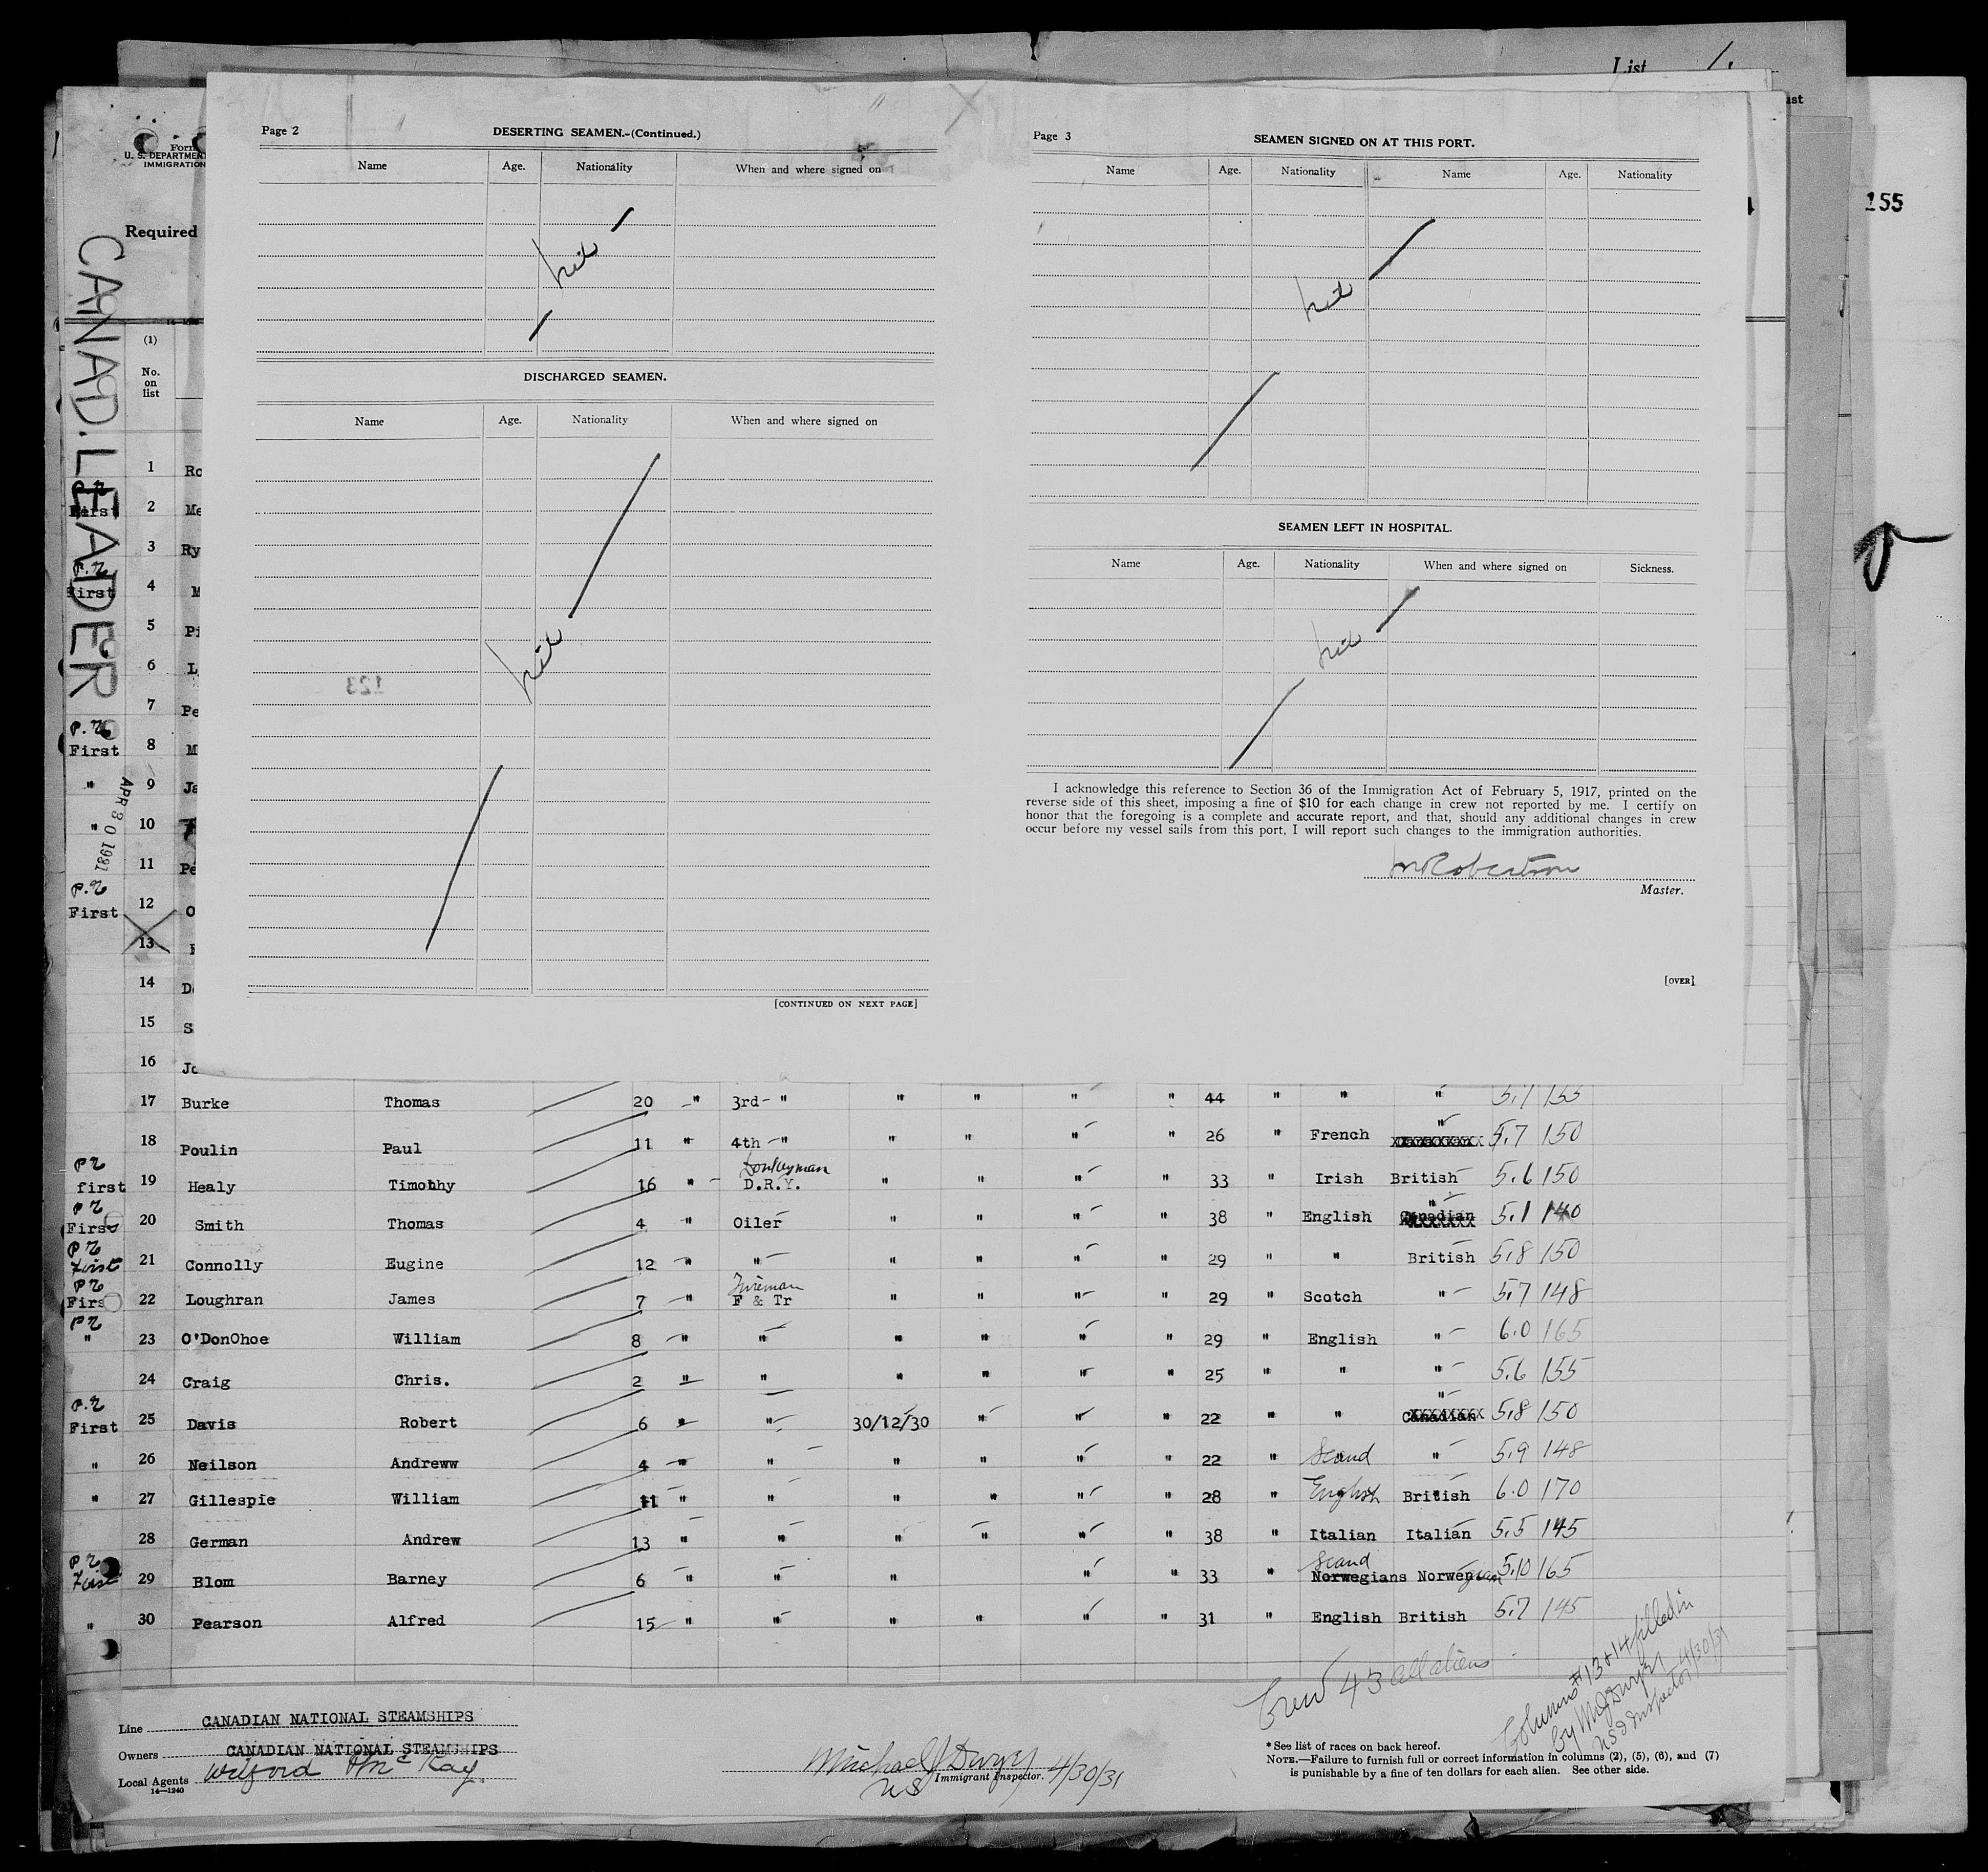 List 1.
155
Form
U. S. DEPARTMENT
IMMIGRATION
Required
CANAD. LEADER
APR 30 1931
Page 2
DESERTING SEAMEN.-(Continued.)
Name Age. Nationality When and where signed on
nil
DISCHARGED SEAMEN.
Name Age. Nationality When and where signed on
nil
123
[CONTINUED ON NEXT PAGE]
Page 3
SEAMEN SIGNED ON AT THIS PORT.
Name Age. Nationality Name Age. Nationality
nil
SEAMEN LEFT IN HOSPITAL.
Name Age. Nationality When and where signed on Sickness.
nil
I acknowledge this reference to Section 36 of the Immigration Act of February 5, 1917, printed on the
reverse side of this sheet, imposing a fine of $10 for each change in crew not reported by me. I certify on
honor that the foregoing is a complete and accurate report, and that, should any additional changes in crew
occur before my vessel sails from this port, I will report such changes to the immigration authorities.
Robertson
Master.
[OVER]
(1)
No.
on
list
1 Ro
First 2 Me
3 Ry
First 4 M
5 Pi
6 L
7 Pe
First 8 M
" 9 Ja
" 10
11 Pe
First 12 O
13
14 D
15 S
16 Jo
17 Burke Thomas 20 " 3rd " " " " " 44 " " " 5.7 155
18 Poulin Paul 11 " 4th " " " " " 26 " French " 5.7 150
first 19 Healy Timothy 16 " Donkeyman D.R.Y. " " " " 33 " Irish British 5.6 150
First 20 Smith Thomas 4 " Oiler " " " " 38 " English Canadian " 5.1 140
First 21 Connolly Eugine 12 " " " " " " 29 " " British 5.8 150
First 22 Loughran James 7 " Fireman F & Tr " " " " 29 " Scotch " 5.7 148
" 23 O'DonOhoe William 8 " " " " " " 29 " English " 6.0 165
24 Craig Chris. 2 " " " " " " 25 " " " 5.6 155
First 25 Davis Robert 6 " " 30/12/30 " " " 22 " " Canadian " 5.8 150
" 26 Neilson Andreww 4 " " " " " " 22 " Scand " 5.9 148
" 27 Gillespie William 11 " " " " " " 28 " English British 6.0 170
28 German Andrew 13 " " " " " " 38 " Italian Italian 5.5 145
First 29 Blom Barney 6 " " " " " 33 " Scand Norwegians Norwegian 5.10 165
" 30 Pearson Alfred 15 " " " " " " 31 " English British 5.7 145
Crew 43 all aliens
Columns #13 & 14 filled in
by M J Dwyer
US Inspector 4/30/31
Line CANADIAN NATIONAL STEAMSHIPS
Owners CANADIAN NATIONAL STEAMSHIPS
Local Agents Kay
14—1240
Michael J Dwyer
US Immigrant Inspector. 4/30/31
* See list of races on back hereof.
NOTE.—Failure to furnish full or correct information in columns (2), (5), (6), and (7)
is punishable by a fine of ten dollars for each alien. See other side.